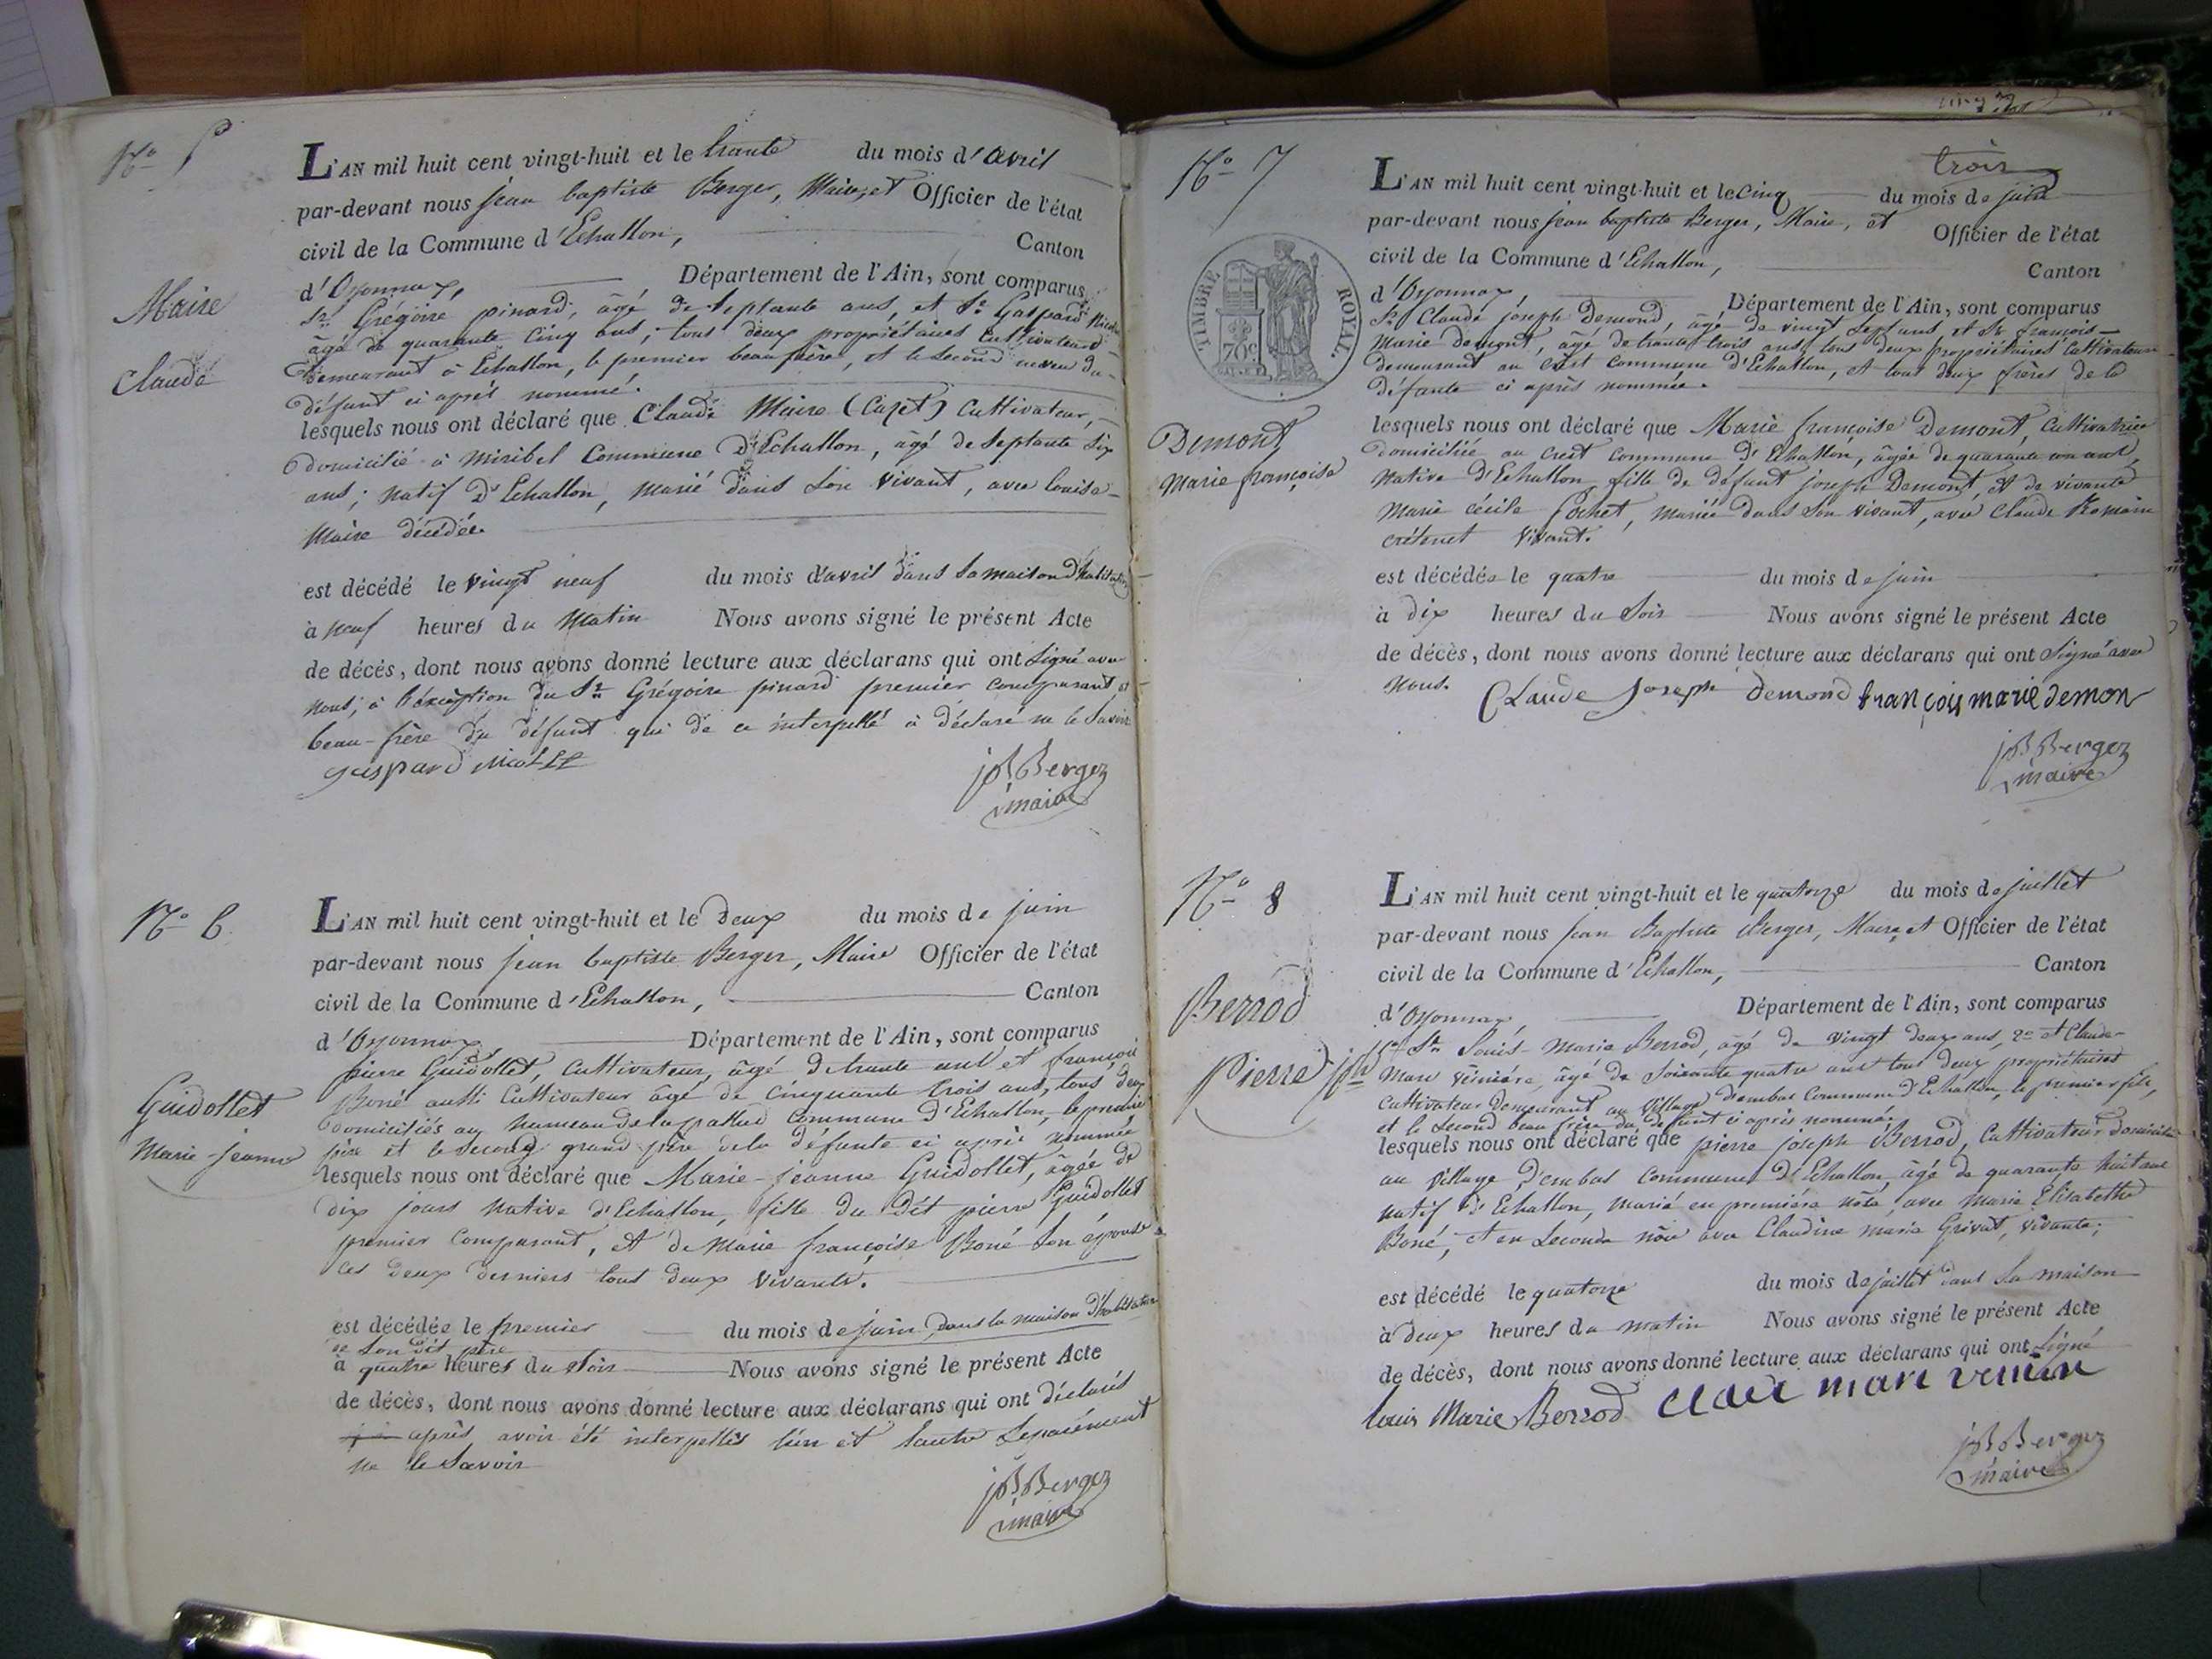 No 5
L'AN mil huit cent vingt-huit et le trante du mois d'avril
par-devant nous jean baptiste Berger, Maire, et Officier de l'état
civil de la Commune d'Echallon, Canton
d'Oyonnax, Département de l'Ain, sont comparus
Maire
Claude
Sr. Grégoire pinard, âgé de septante ans, et Sr. Gaspard Nicolle
âgé de quarante cinq ans; tous deux propriétaires Cultivateurs
demeurant à Echallon, le premier beau frère, et le second neveu du
défunt ci après nommé.
lesquels nous ont déclaré que Claude Maire (Cazet) Cultivateur,
domicilié à Miribel Commune D'Echallon, âgé de septante six
ans; natif D'Echallon, marié dans son vivant, avec louise
Maire décédée.
est décédé le vingt neuf du mois d'avril dans sa maison d'habitation
à neuf heures du Matin Nous avons signé le présent Acte
de décès, dont nous avons donné lecture aux déclarans qui ont signé avec
nous, à l'éxception du Sr. Grégoire pinard premier comparant et
beau-frère du défunt qui de ce interpellé à déclaré ne le savoir
gaspard nicolle
jB Berger
maire
No 6.
L'AN mil huit cent vingt-huit et le deux du mois de juin
par-devant nous jean baptiste Berger, Maire Officier de l'état
civil de la Commune d'Echallon, Canton
d'Oyonnax, Département de l'Ain, sont comparus
Guidollet
Marie-jeanne
pierre Guidollet, Cultivateur, âgé de trante ans et françois
Boné aussi Cultivateur âgé de Cinquante trois ans, tous deux
domiciliés au hameau de lapallud Commune d'Echallon, le premier
père et le second grand père de la défunte ci après nommée
lesquels nous ont déclaré que Marie-jeanne Guidollet, âgée de
dix jours Native d'Echallon, fille du Dét pierre Guidollet
premier Comparant, et de Marie françoise Boné son épouse
ces deux derniers tous deux vivants.
est décédée le premier du mois de juin dans la maison d'habitation
de son dét père
à quatre heures du soir Nous avons signé le présent Acte
de décès, dont nous avons donné lecture aux déclarans qui ont déclarés
après avoir été interpellés l'un et l'autre séparément
ne le savoir
jB Berger
maire
trois
No 7
L'AN mil huit cent vingt-huit et le cinq du mois de juin
par-devant nous jean baptiste Berger, Maire, et Officier de l'état
civil de la Commune d'Echallon, Canton
d'Oyonnax Département de l'Ain, sont comparus
TIMBRE ROYAL
70c
Sr. Claude joseph Demond, âgé de vingt sept ans, et Sr. françois
Marie demont, âgé de trante trois ans, tous deux propriétaires Cultivateurs
demeurant au crest Commune d'Echallon, et tous deux frères de la
défunte ci après nommée.
Demont
Marie françoise
lesquels nous ont déclaré que Marie françoise Demont, Cultivatrice
domiciliée au crest Commune d'Echallon, âgée de quarante un ans,
Native d'Echallon fille de défunt joseph Demont, et de vivante
Marie cécile Pochet, mariée dans son vivant, avec Claude Romain
crétenet vivant.
est décédée le quatre du mois de juin
à dix heures du Soir Nous avons signé le présent Acte
de décès, dont nous avons donné lecture aux déclarans qui ont signé avec
nous.
Claude Joseph demond françois marie demon
jB Berger
maire
No 8
L'AN mil huit cent vingt-huit et le quatorze du mois de juillet
par-devant nous jean Baptiste Berger, Maire, et Officier de l'état
civil de la Commune d'Echallon, Canton
d'Oyonnax, Département de l'Ain, sont comparus
Berrod
Pierre jph
1er Sr. Louis-Marie Berrod, âgé de vingt deux ans, 2e et Claude-
Marc veinière, âgé de soixante quatre ans tous deux propriétaires
Cultivateur Demeurant au Village d'embas Commune d'Echallon, le premier fils,
et le second beau frère du défunt ci après nommé;
lesquels nous ont déclaré que pierre joseph Berrod, Cultivateur domicilié
au Village d'embas Commune d'Echallon, âgé de quarante huit ans
natif d'Echallon, marié en première nôce, avec Marie Elisabethe
Boné, et en Seconde nôce avec Claudine marie Grivat, vivante;
est décédé le quatorze du mois de juillet dans sa maison
à deux heures du matin Nous avons signé le présent Acte
de décès, dont nous avons donné lecture aux déclarans qui ont signé
louis Marie Berrod marc
jB Berger
maire